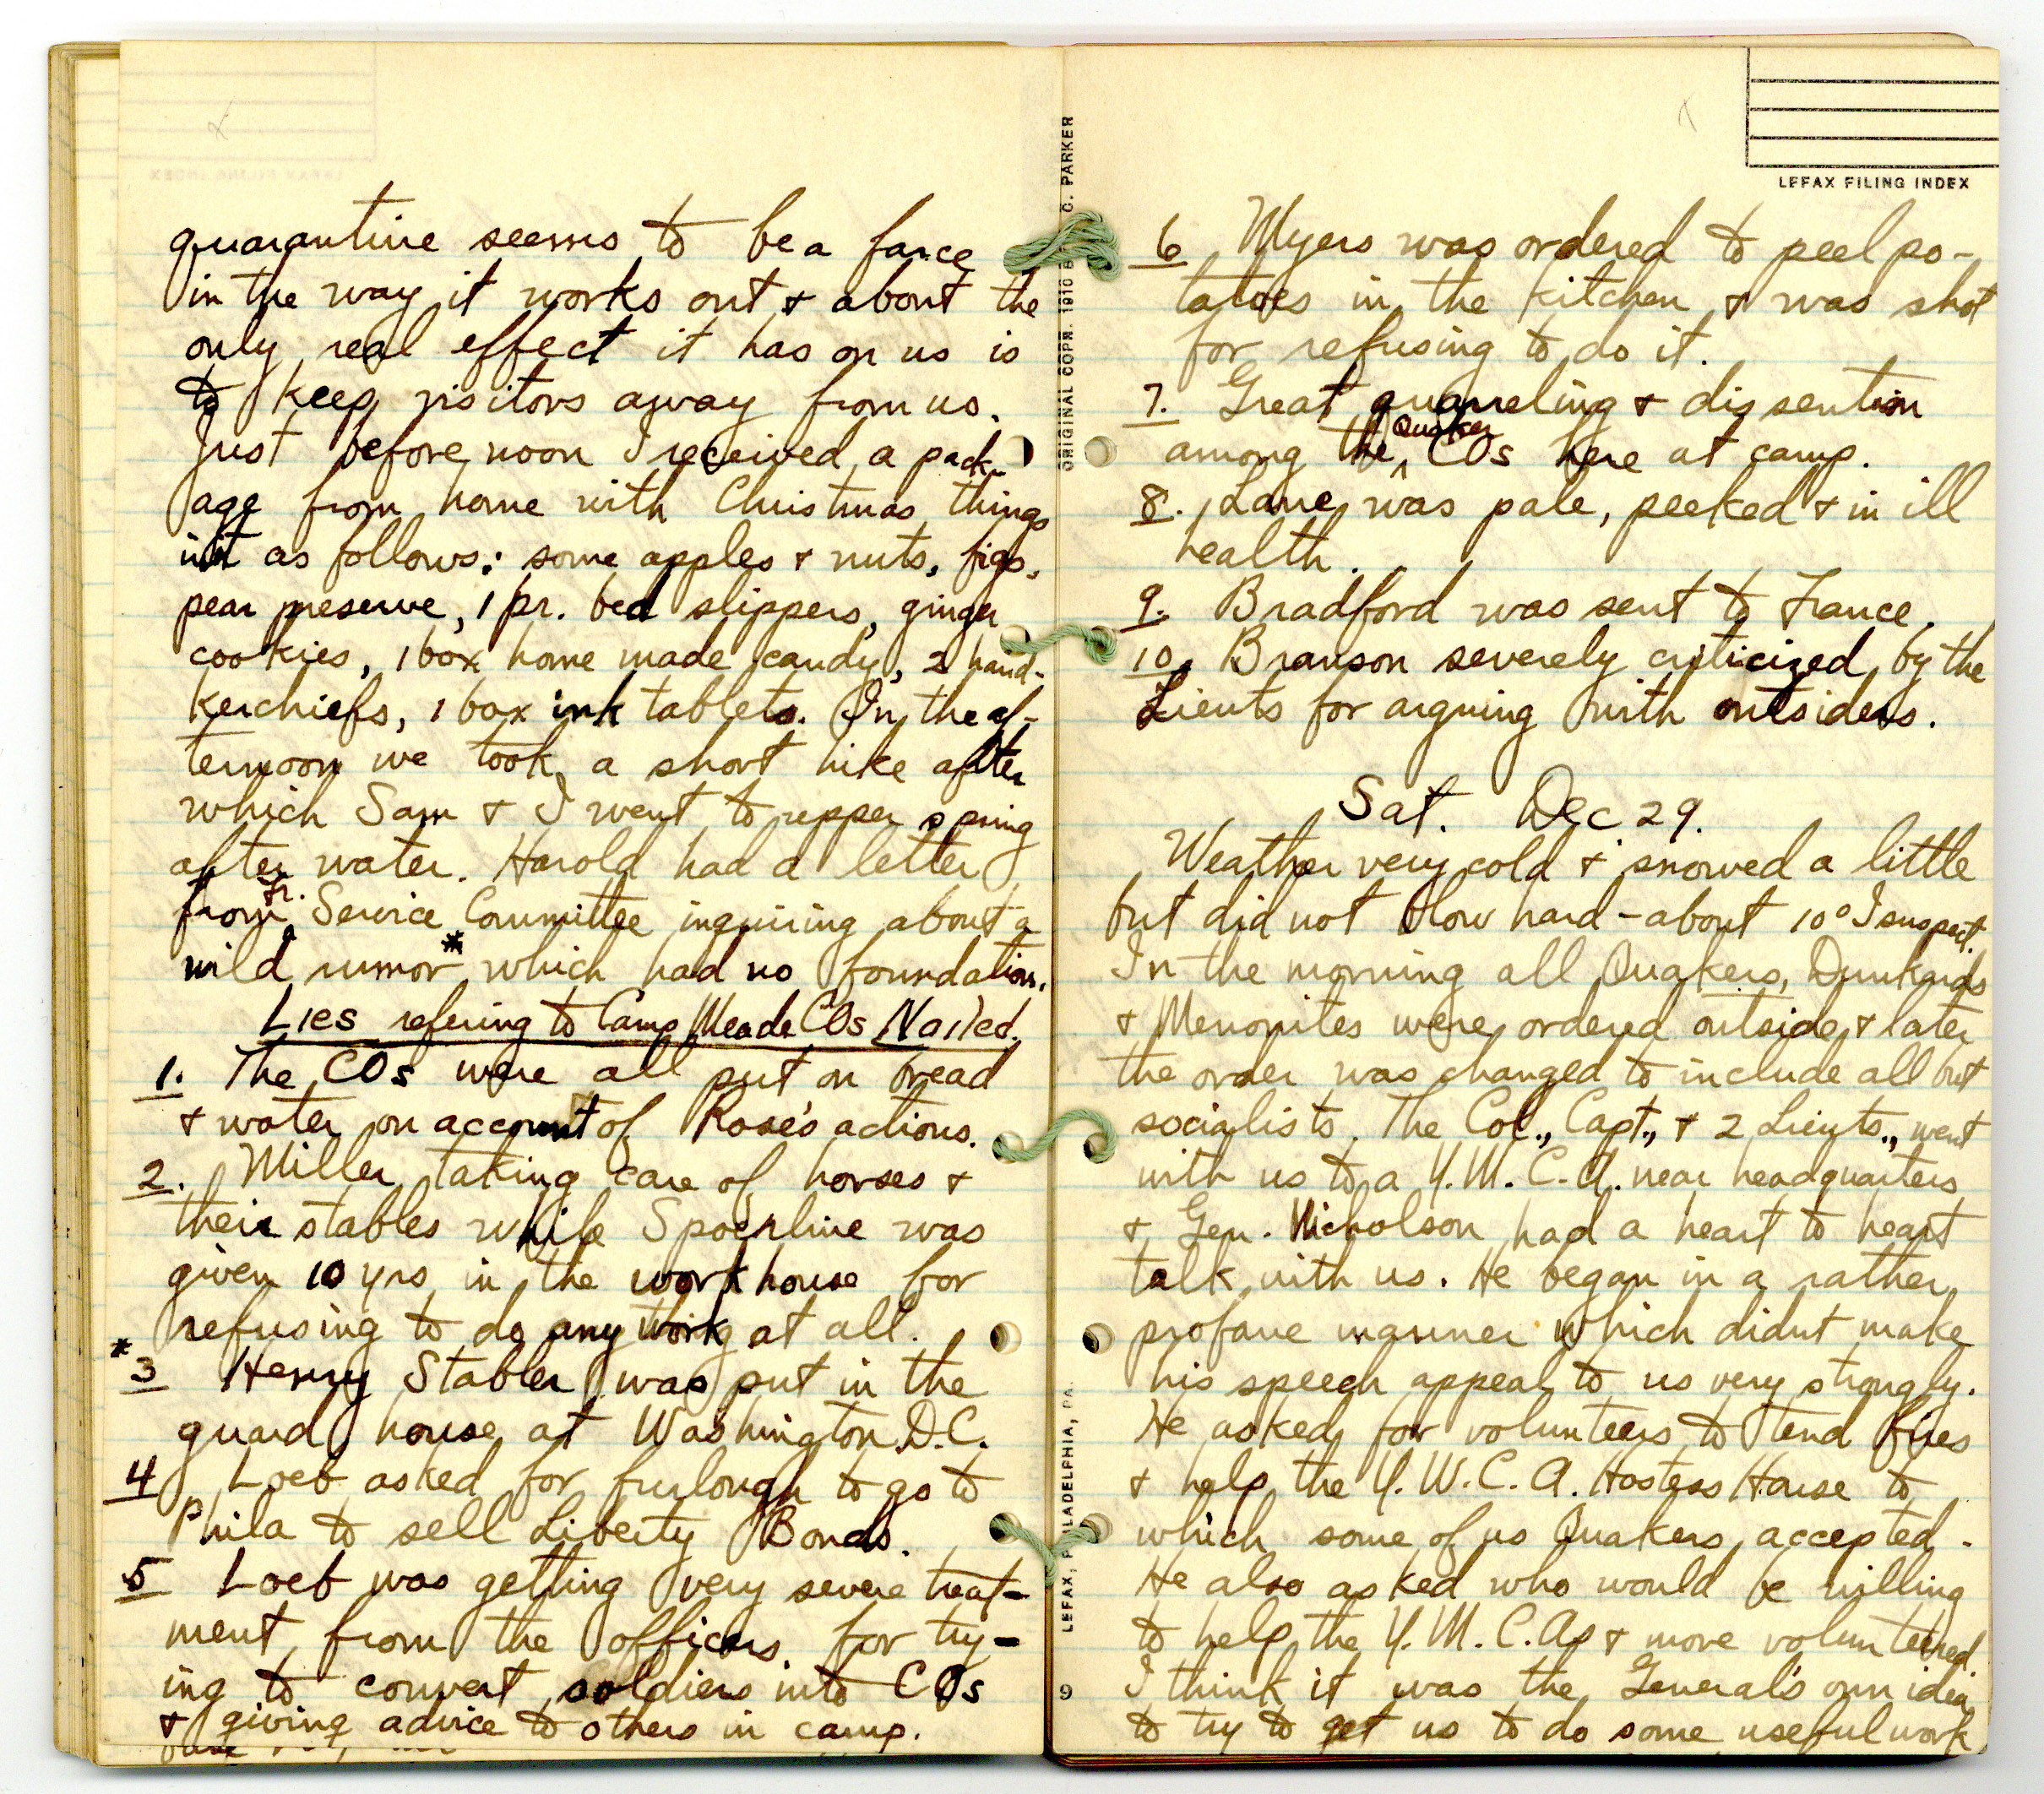 quarantine seems to be a farce
in the way it works out & about the
only real effect it has on us is
to keep visitors away from us.
Just before noon I received a pack-
age from home with Christmas things
in it as follows: some apples & nuts, figs,
pear preserve, 1 pr. bed slippers, ginger
cookies, 1 box home made candy, 2 hand-
kerchiefs, 1 box ink tablets. In the af-
ternoon we took a short hike after
which Sam & I went to upper spring
after water. Harold had a letter
from Fr. Service Committee inquiring about a
wild rumor* which had no foundation.
Lies refering to Camp Meade COs Nailed.
1. The COs were all put on bread
& water on account of Rose's actions.
2. Miller taking care of horses &
their stables while Spoerline was
given 10 yrs in the work house for
refusing to do any work at all.
*3 Henry Stabler was put in the
guard house at Washington D.C.
4 Loeb asked for furlough to go to
Phila to sell Liberty Bonds.
5 Loeb was getting very severe treat-
ment from the officers for try-
ing to convert soldiers into COs
& giving advice to others in camp.
ORIGINAL COPR. 1910 C. PARKER
LEFAX, PHILADELPHIA, PA.
9
LEFAX FILING INDEX
6 Myers was ordered to peel po-
tatoes in the kitchen & was shot
for refusing to do it.
7. Great quarreling & dissention
among the Quaker COs here at camp.
8. Lane was pale, peeked & in ill
health.
9. Bradford was sent to France.
10. Branson severely criticized by the
Lieuts for arguing with outsiders.
Sat. Dec 29.
Weather very cold & snowed a little
but did not blow hard - about 10° I suspect.
In the morning all Quakers, Dunkards
& Menonites were ordered outside & later
the order was changed to include all but
socialists. The Col., Capt., & 2 Lieuts., went
with us to a Y.M.C.A. near headquarters
& Gen. Nicholson had a heart to heart
talk with us. He began in a rather
profane manner which didnt make
his speech appeal to us very strongly.
He asked for volunteers to tend fires
& help the Y.W.C.A. Hostess House to
which some of us Quakers accepted.
He also asked who would be willing
to help the Y.M.C.As & more volunteered.
I think it was the General's own idea
to try to get us to do some useful work